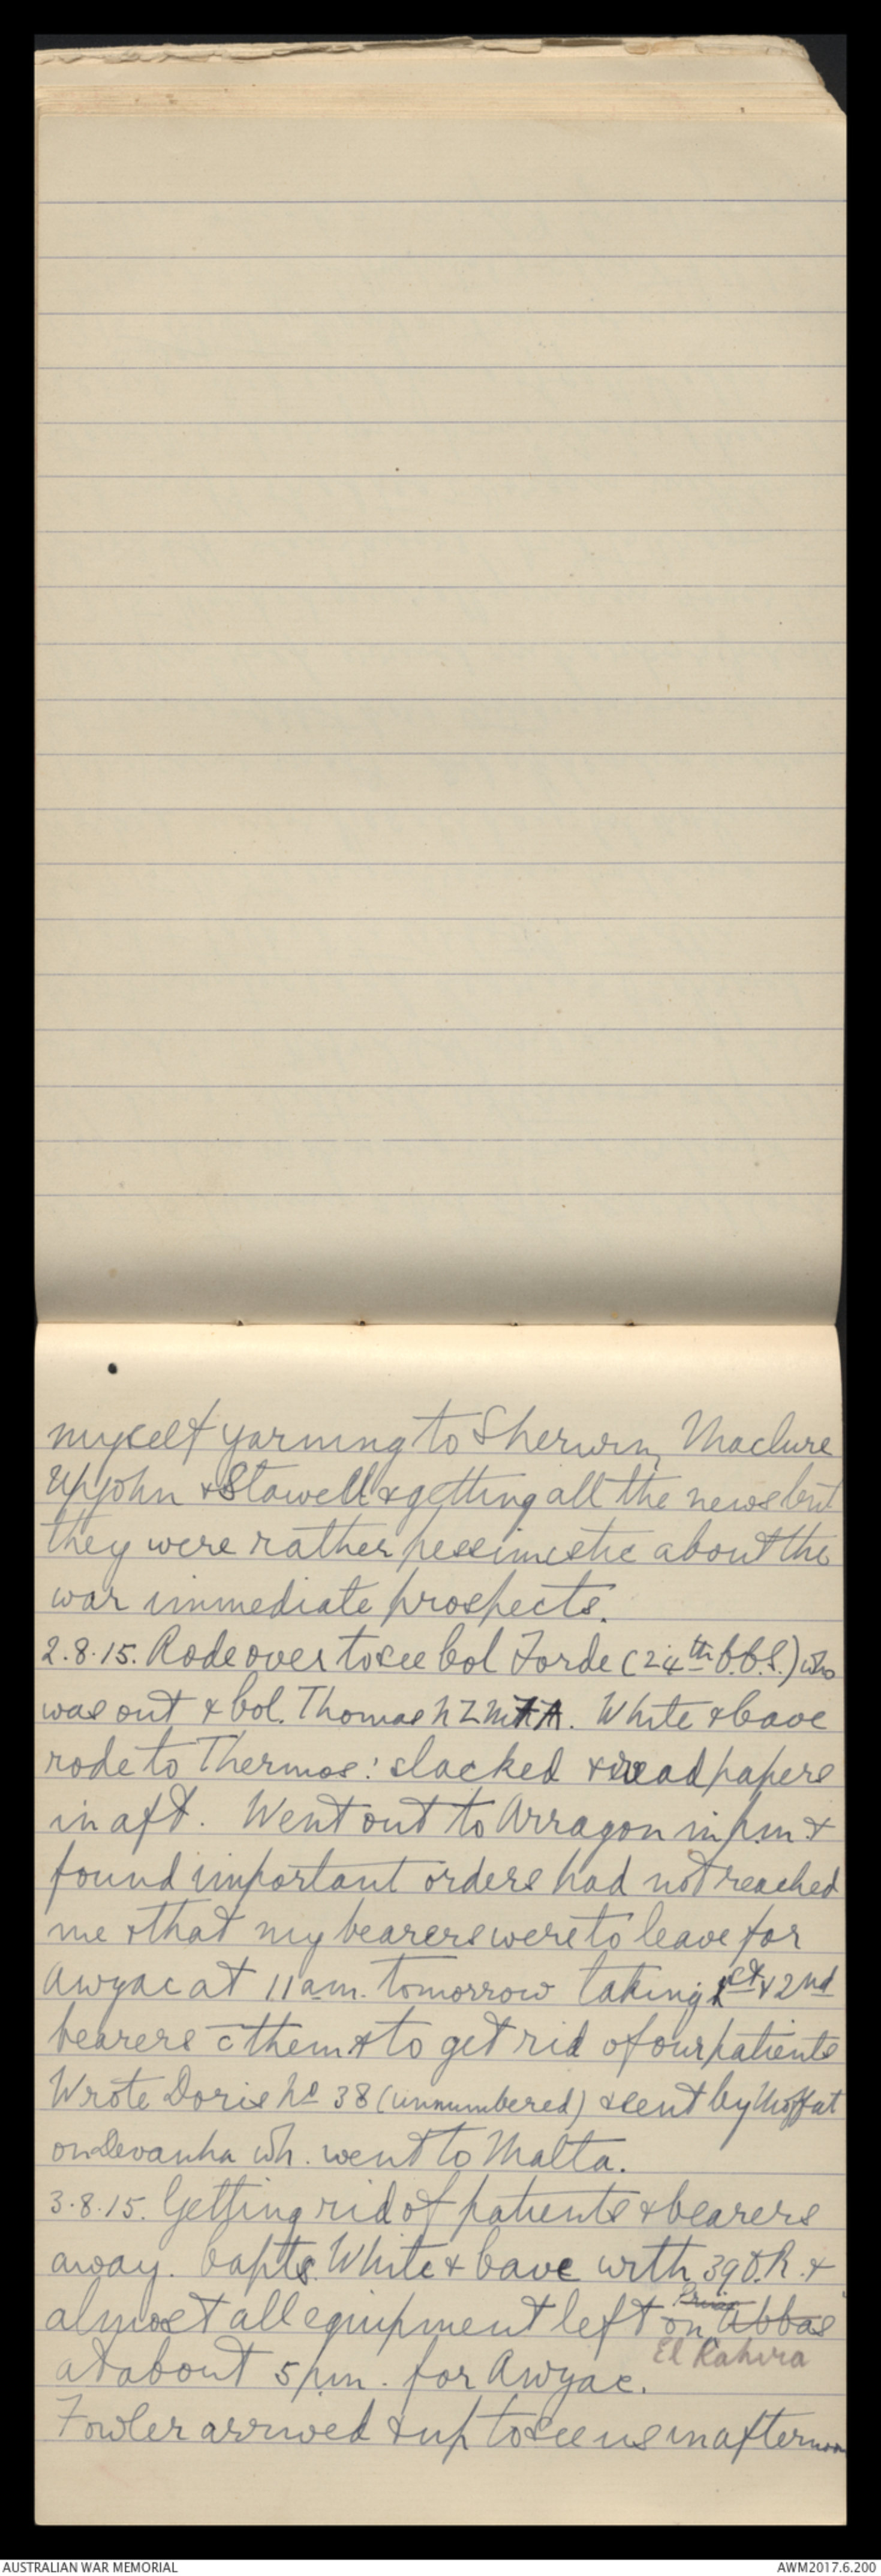 myself yarning to Sherwin, Maclure
Upjohn & Stawell & getting all the news but
they were rather pessimistic about the
war immediate prospects.
2.8.15. Rode over to see Col Forde (24th C.C.S.) who
was out & Col. Thomas NZMFA. White & Cave
rode to Thermos: slacked & read papers
in aft. Went out to Arragon in pm &
found important orders had not reached
me & that my bearers were to leave for
Awyac at 11 am. tomorrow taking 1st & 2nd
bearers c̄ them & to get rid of our patients
Wrote Doris No 38 (unnumbered) & sent by Moffat
on Devanha wh. went to Malta.
3.8.15. Getting rid of patients & bearers
away. Capts. White & Cave with 39 O.R. &
almost all equipment left on Prince Abbas
El Kahira
at about 5 pm. for Awyac.
Fowler arrived & up to see us in afternoon
AUSTRALIAN WAR MEMORIAL
AWM2017.6.200